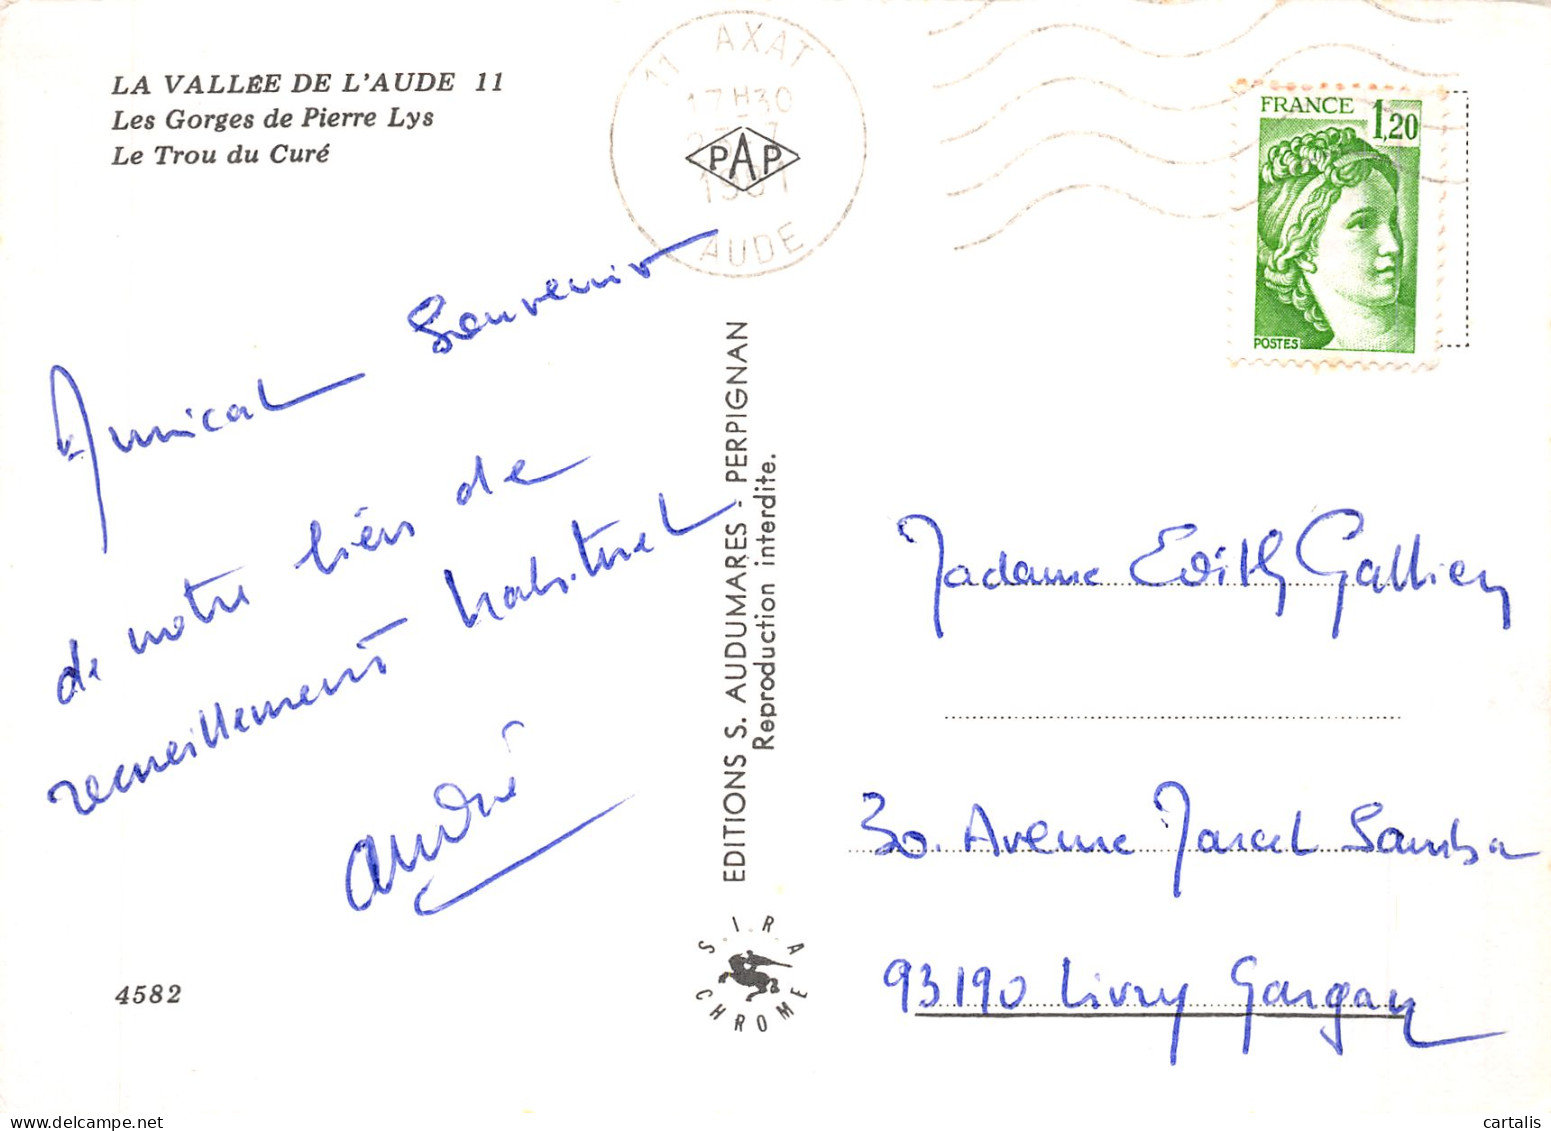 LA VALLÉE DE L'AUDE 11
Les Gorges de Pierre Lys
Le Trou du Curé
11 AXAT
17H30
1981
AUDE
PAP
FRANCE 1,20
POSTES
Amical Souvenir
de notre lieu de
recueillement habituel
André
4582
EDITIONS S. AUDUMARES - PERPIGNAN
Reproduction interdite.
S.I.R.A
CHROME
Madame Edith Gallien
30. Avenue Marcel Semba
93190 Livry Gargan
www.delcampe.net
cartalis